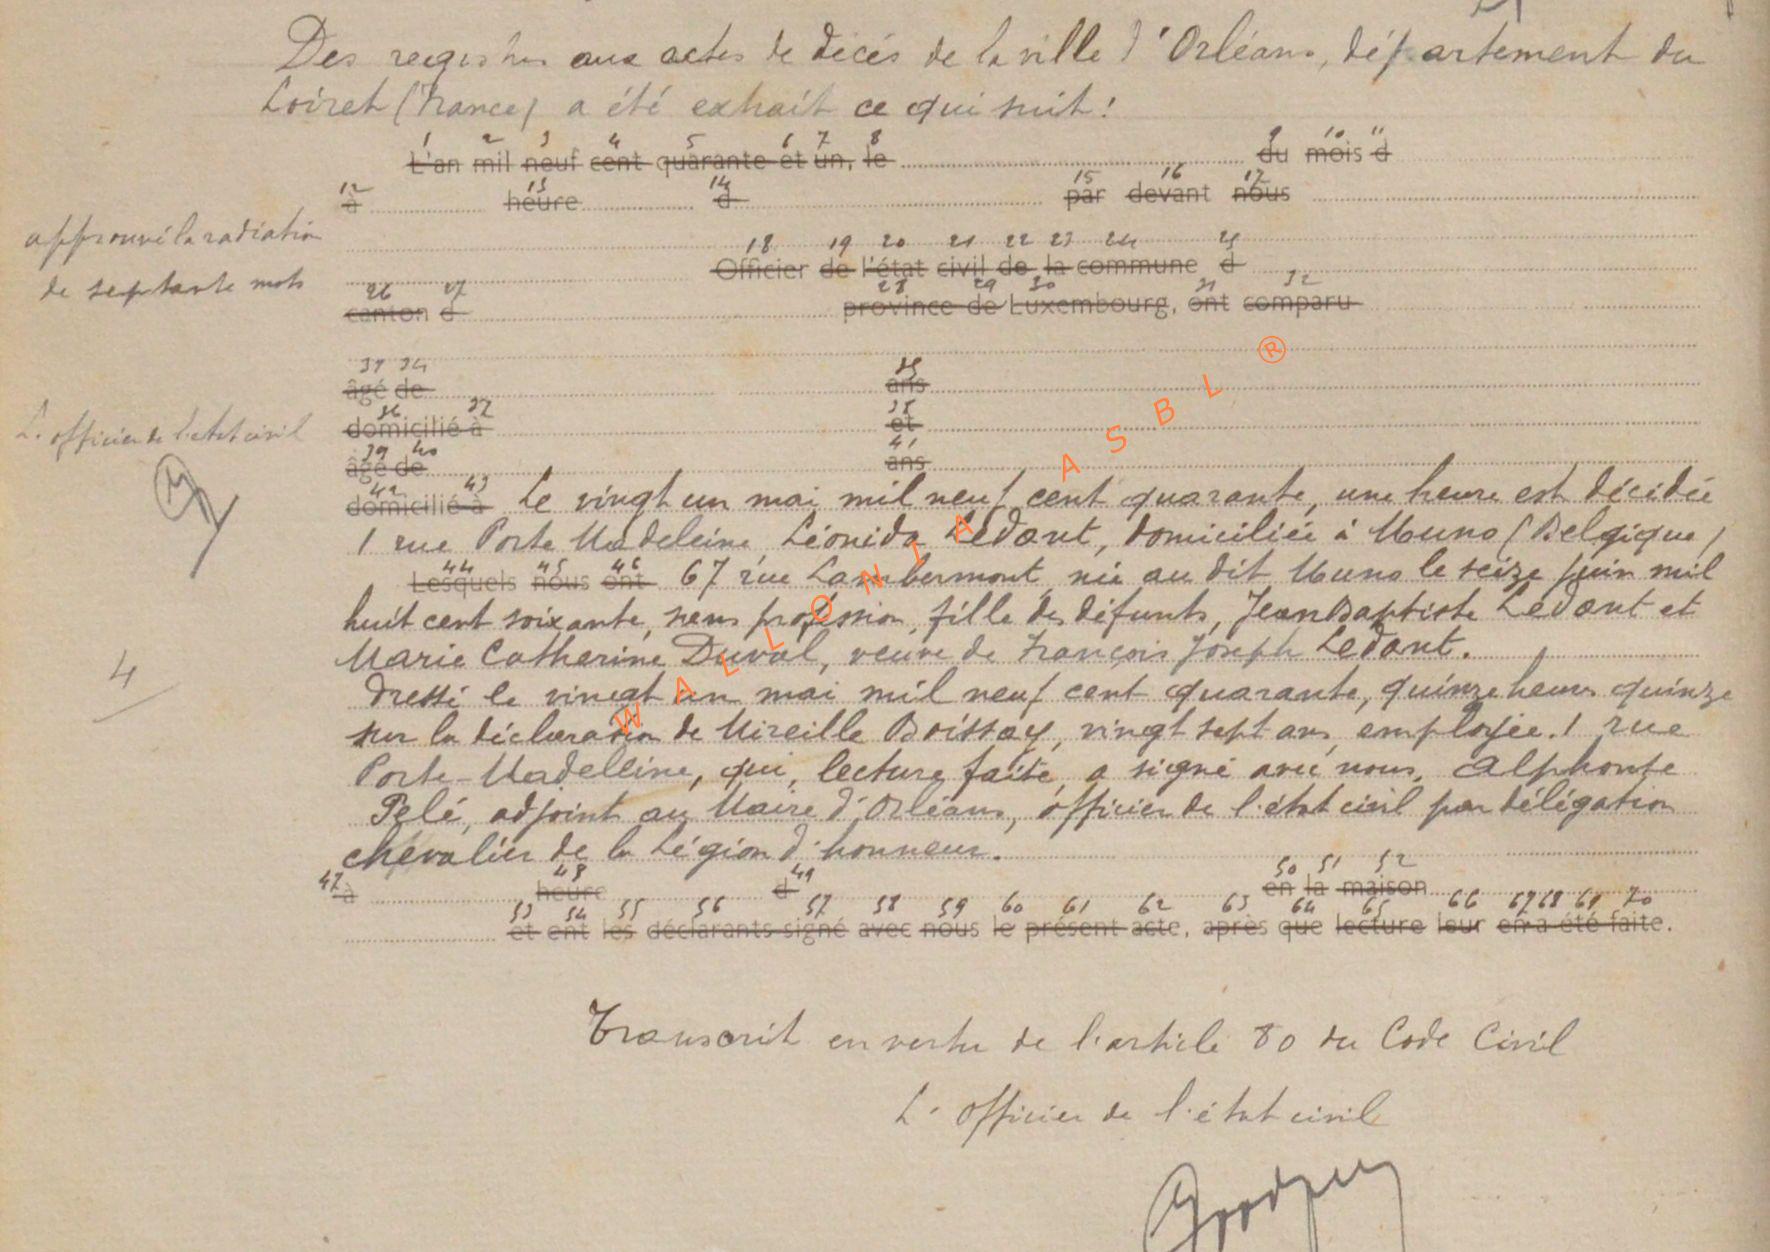 Des registres aux actes de décès de la ville d'Orléans, département du
Loiret (France) a été extrait ce qui suit:
1 2 3 4 5 6 7 8 9 10 11
L'an mil neuf cent quarante et un, le du mois d
12 13 14 15 16 17
à heure d par devant nous
approuvé la radiation
de septante mots
18 19 20 21 22 23 24 25
Officier de l'état civil de la commune d
26 27 28 29 30 31 32
canton d province de Luxembourg, ont comparu
33 34 35
âgé de ans
36 37 38
domicilié à et
L'officier de l'état civil
39 40 41
âgé de ans
42 43
domicilié à Le vingt un mai mil neuf cent quarante, une heure est décédée
1 rue Porte Madeleine, Léonida Ledant, domiciliée à Muno (Belgique)
44 45 46
Lesquels nous ont 67 rue Lambermont, née au dit Muno le seize juin mil
huit cent soixante, sans profession, fille des défunts, Jean Baptiste Ledant et
Marie Catherine Duval, veuve de François Joseph Ledant.
4
Dressé le vingt un mai mil neuf cent quarante, quinze heures quinze
sur la déclaration de Mireille Boissay, vingt sept ans, employée. 1 rue
Porte-Madeleine, qui, lecture faite, a signé avec nous, Alphonse
Pelé, adjoint au Maire d'Orléans, officier de l'état civil par délégation
chevalier de la Légion d'honneur.
47 48 49 50 51 52
à heure d en la maison
53 54 55 56 57 58 59 60 61 62 63 64 65 66 67 68 69 70
et ont les déclarants signé avec nous le présent acte, après que lecture leur en a été faite.
Transcrit en vertu de l'article 80 du Code Civil
L'officier de l'état civil
WALLONIA ASBL ®